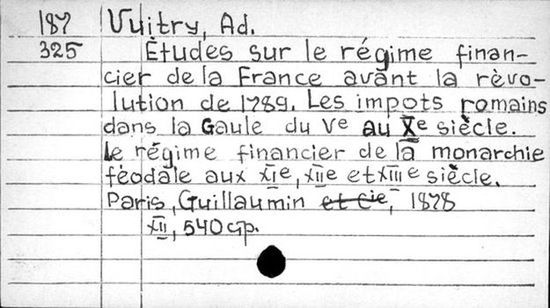 187 Vuitry, Ad.
325 Études sur le régime finan-
cier de la France avant la rèvo-
lution de 1789. Les impots romains
dans la Gaule du Ve au Xe siècle.
Le régime financier de la monarchie
féodale aux XIe, XIIe et XIIIe siècle.
Paris, Guillaumin et Cie, 1878
XII, 540 cp.